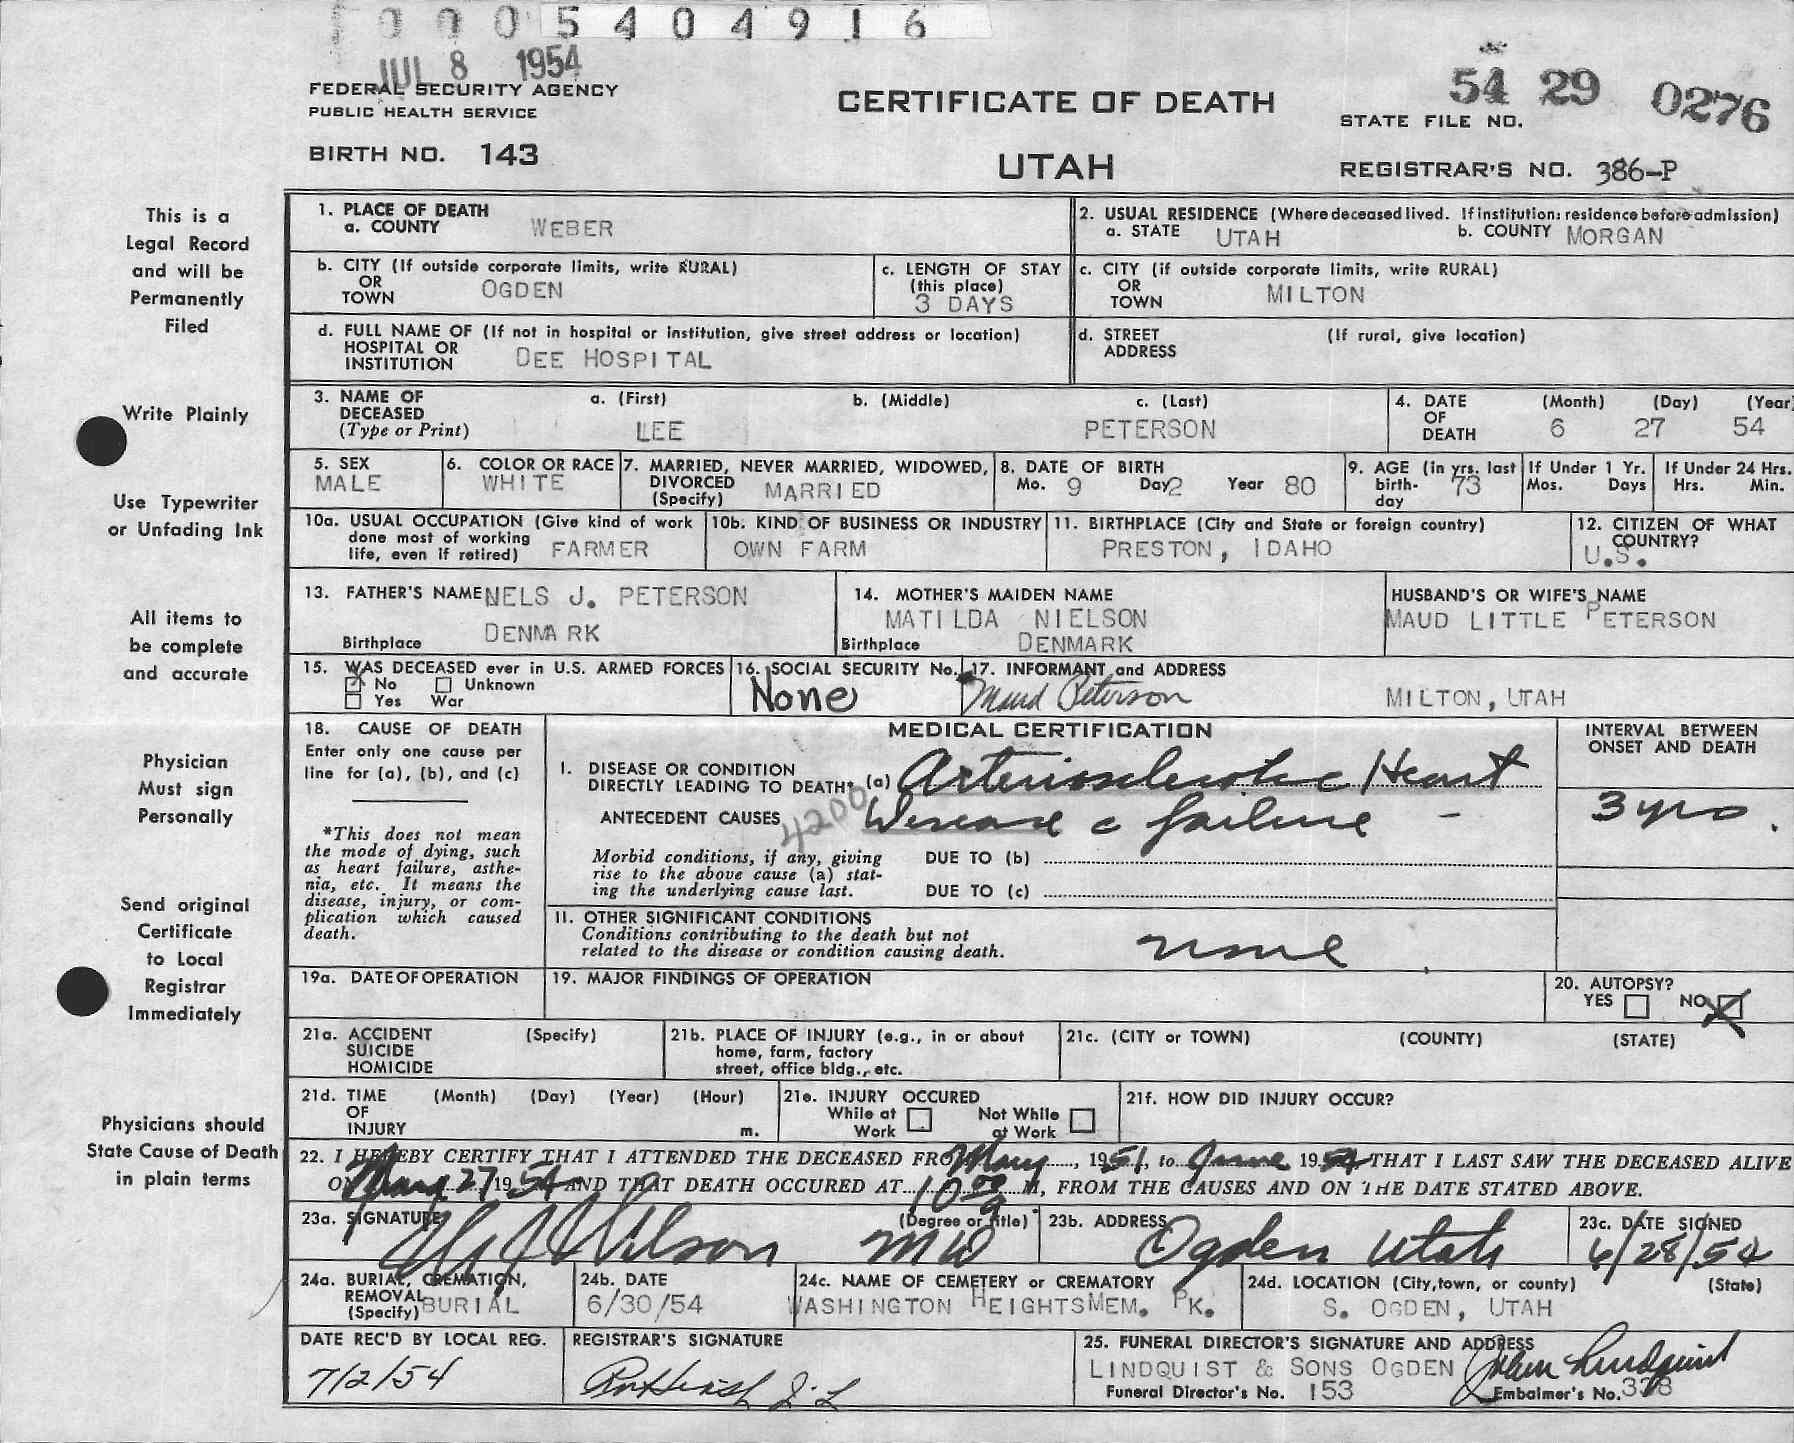 0005404916
JUL 8 1954
FEDERAL SECURITY AGENCY
PUBLIC HEALTH SERVICE
BIRTH NO. 143
CERTIFICATE OF DEATH
UTAH
54 29 0276
STATE FILE NO.
REGISTRAR'S NO. 386-P
This is a
Legal Record
and will be
Permanently
Filed
Write Plainly
Use Typewriter
or Unfading Ink
All items to
be complete
and accurate
Physician
Must sign
Personally
Send original
Certificate
to Local
Registrar
Immediately
Physicians should
State Cause of Death
in plain terms
1. PLACE OF DEATH
a. COUNTY WEBER
2. USUAL RESIDENCE (Where deceased lived. If institution: residence before admission)
a. STATE UTAH b. COUNTY MORGAN
b. CITY (If outside corporate limits, write RURAL)
OR
TOWN OGDEN
c. LENGTH OF STAY
(this place)
3 DAYS
c. CITY (if outside corporate limits, write RURAL)
OR
TOWN MILTON
d. FULL NAME OF (If not in hospital or institution, give street address or location)
HOSPITAL OR
INSTITUTION DEE HOSPITAL
d. STREET (If rural, give location)
ADDRESS
3. NAME OF a. (First) b. (Middle) c. (Last)
DECEASED
(Type or Print) LEE PETERSON
4. DATE (Month) (Day) (Year)
OF
DEATH 6 27 54
5. SEX
MALE
6. COLOR OR RACE
WHITE
7. MARRIED, NEVER MARRIED, WIDOWED,
DIVORCED
(Specify) MARRIED
8. DATE OF BIRTH
Mo. 9 Day 2 Year 80
9. AGE (in yrs. last
birth-
day 73
If Under 1 Yr.
Mos. Days
If Under 24 Hrs.
Hrs. Min.
10a. USUAL OCCUPATION (Give kind of work
done most of working
life, even if retired) FARMER
10b. KIND OF BUSINESS OR INDUSTRY
OWN FARM
11. BIRTHPLACE (City and State or foreign country)
PRESTON, IDAHO
12. CITIZEN OF WHAT
COUNTRY?
U.S.
13. FATHER'S NAME NELS J. PETERSON
Birthplace DENMARK
14. MOTHER'S MAIDEN NAME
MATILDA NIELSON
Birthplace DENMARK
HUSBAND'S OR WIFE'S NAME
MAUD LITTLE PETERSON
15. WAS DECEASED ever in U.S. ARMED FORCES
No Unknown
Yes War
16. SOCIAL SECURITY No.
None
17. INFORMANT and ADDRESS
Maud Peterson MILTON, UTAH
18. CAUSE OF DEATH
Enter only one cause per
line for (a), (b), and (c)
*This does not mean
the mode of dying, such
as heart failure, asthe-
nia, etc. It means the
disease, injury, or com-
plication which caused
death.
MEDICAL CERTIFICATION
I. DISEASE OR CONDITION
DIRECTLY LEADING TO DEATH* (a) Arteriosclerotic Heart
ANTECEDENT CAUSES 4200 Disease c failure -
Morbid conditions, if any, giving
rise to the above cause (a) stat-
ing the underlying cause last.
DUE TO (b)
DUE TO (c)
INTERVAL BETWEEN
ONSET AND DEATH
3 yrs.
II. OTHER SIGNIFICANT CONDITIONS
Conditions contributing to the death but not
related to the disease or condition causing death. none
19a. DATE OF OPERATION
19. MAJOR FINDINGS OF OPERATION
20. AUTOPSY?
YES NO
21a. ACCIDENT (Specify)
SUICIDE
HOMICIDE
21b. PLACE OF INJURY (e.g., in or about
home, farm, factory
street, office bldg., etc.
21c. (CITY or TOWN) (COUNTY) (STATE)
21d. TIME (Month) (Day) (Year) (Hour)
OF
INJURY m.
21e. INJURY OCCURED
While at Work Not While at Work
21f. HOW DID INJURY OCCUR?
22. I HEREBY CERTIFY THAT I ATTENDED THE DECEASED FROM May, 1951, to June 1954 THAT I LAST SAW THE DECEASED ALIVE
ON 27, 1954 AND THAT DEATH OCCURED AT 10 00 a M, FROM THE CAUSES AND ON THE DATE STATED ABOVE.
23a. SIGNATURE (Degree or title)
Wilson MD
23b. ADDRESS
Ogden Utah
23c. DATE SIGNED
6/28/54
24a. BURIAL, CREMATION,
REMOVAL
(Specify) BURIAL
24b. DATE
6/30/54
24c. NAME OF CEMETERY or CREMATORY
WASHINGTON HEIGHTS MEM. PK.
24d. LOCATION (City, town, or county) (State)
S. OGDEN, UTAH
DATE REC'D BY LOCAL REG.
7/2/54
REGISTRAR'S SIGNATURE
25. FUNERAL DIRECTOR'S SIGNATURE AND ADDRESS
LINDQUIST & SONS OGDEN John Lindquist
Funeral Director's No. 153 Embalmer's No. 338